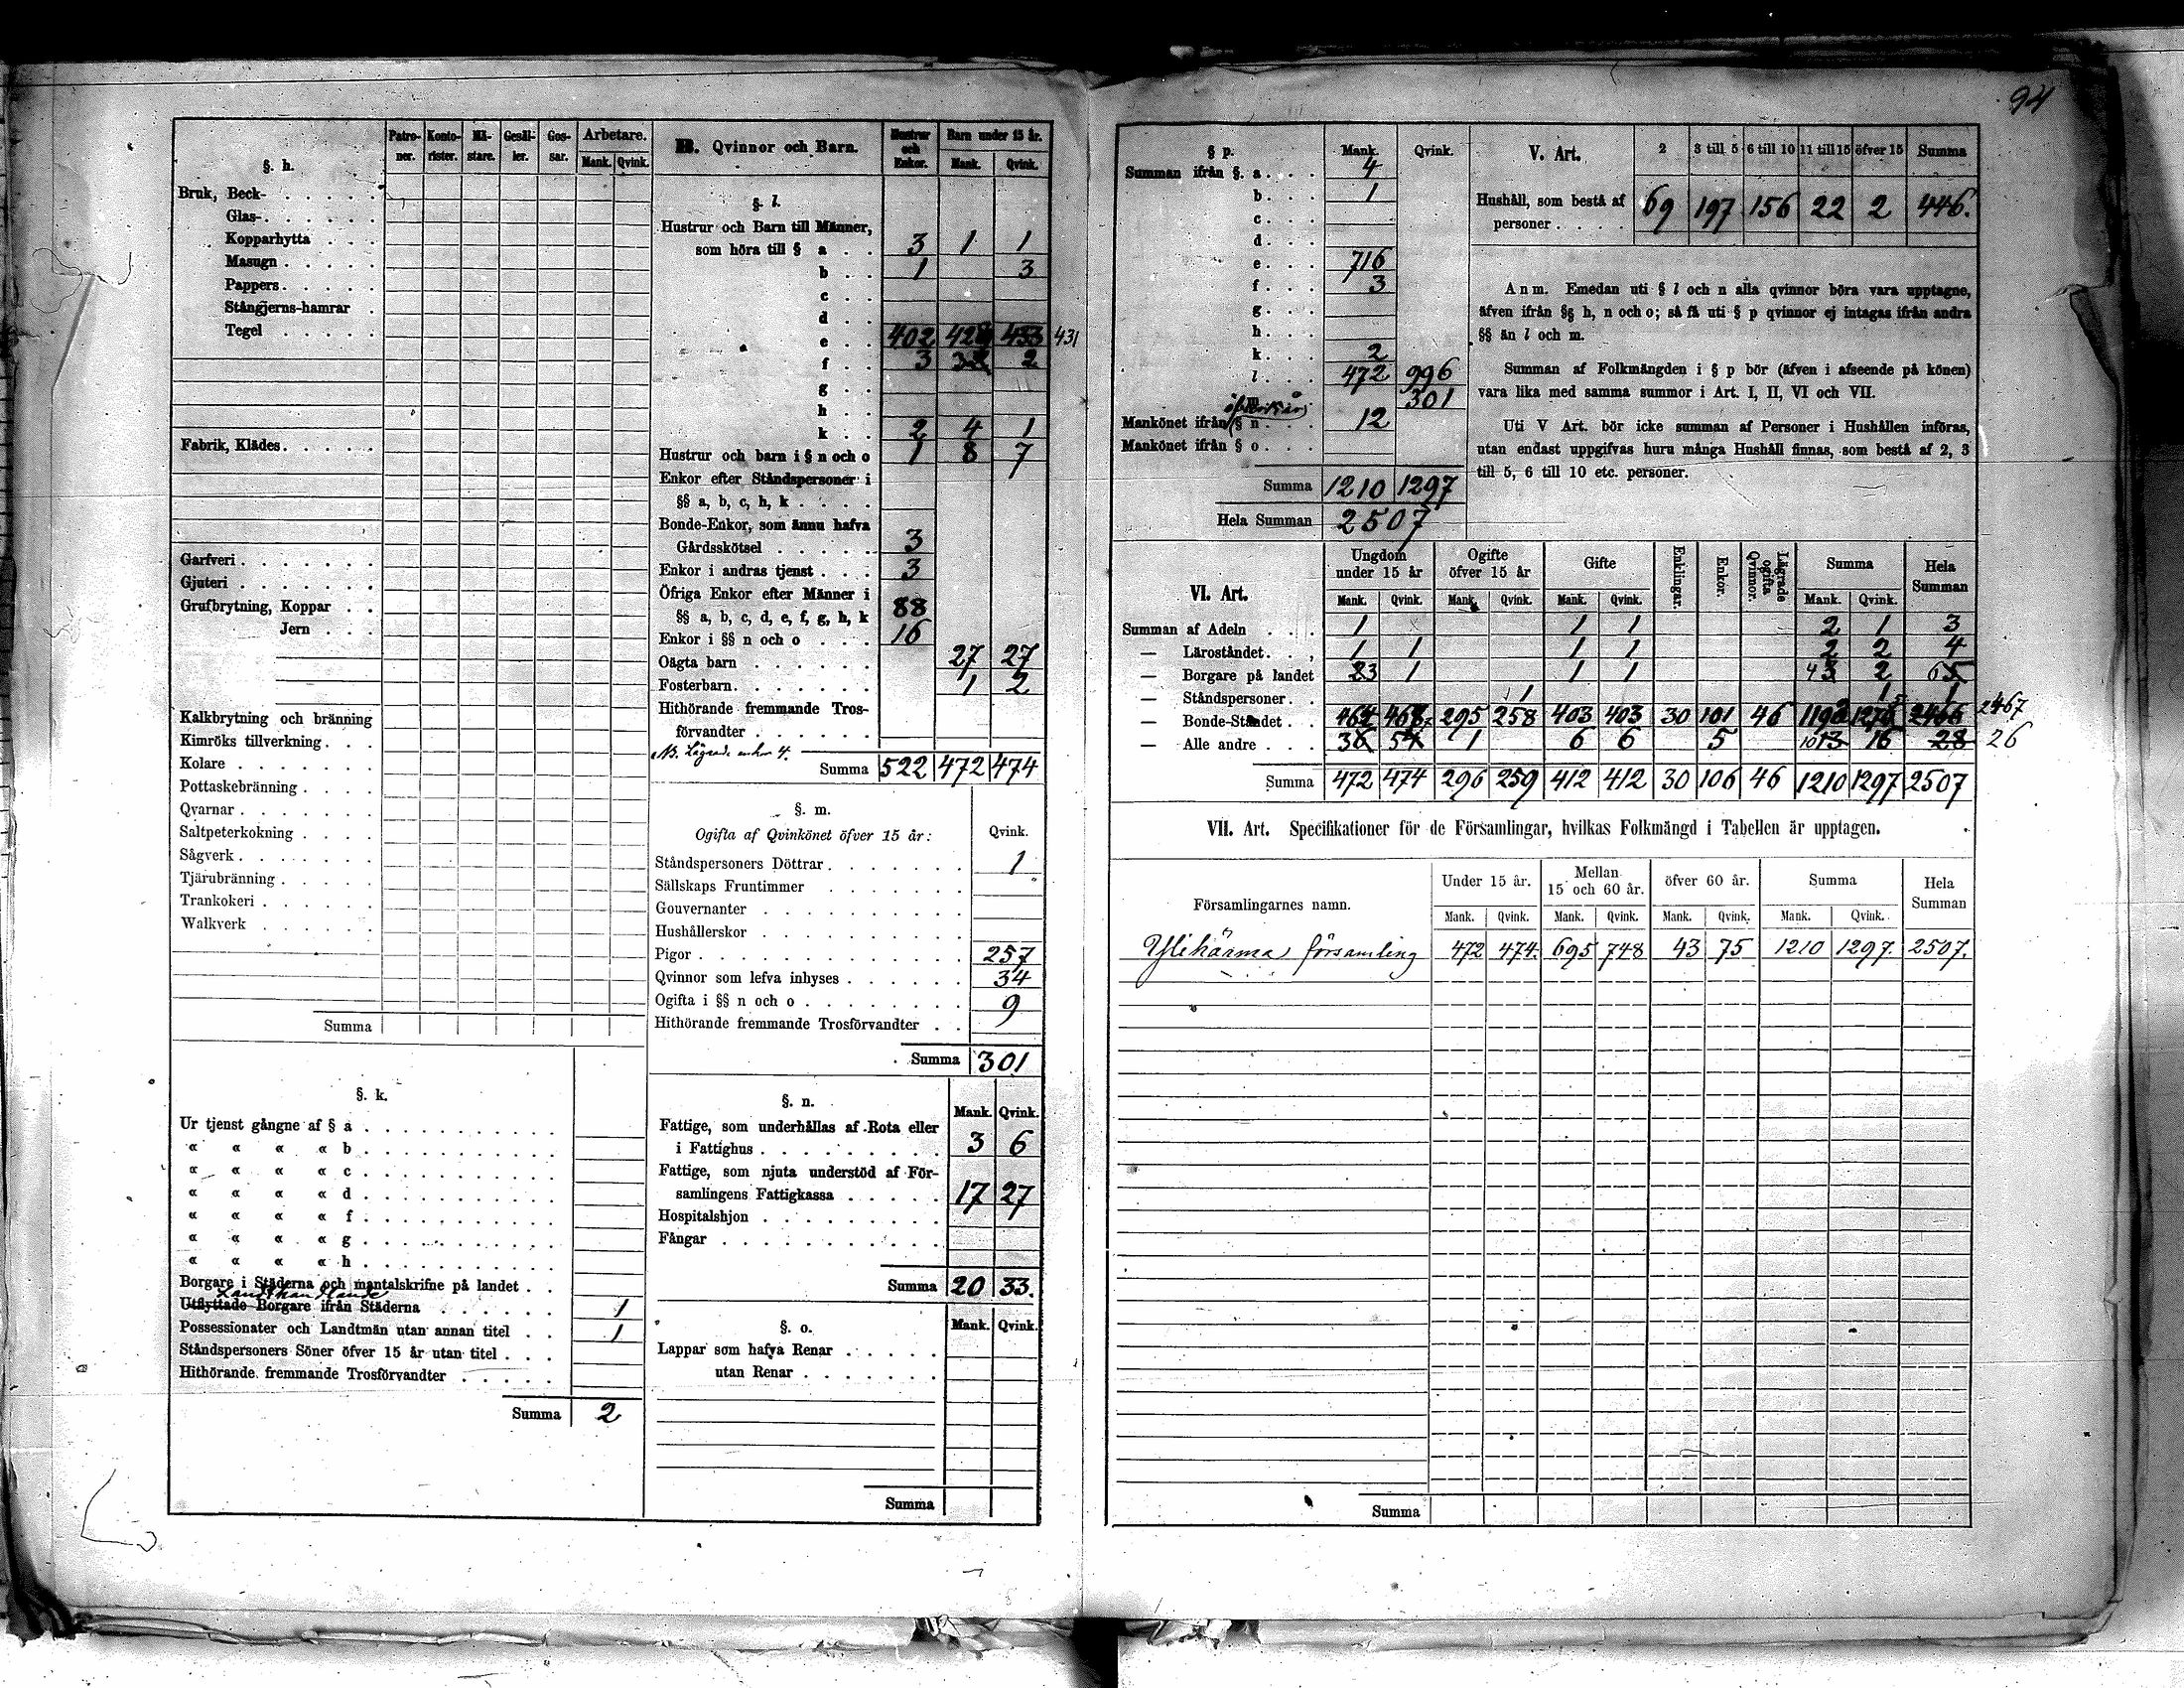 94
§. h.
Patroner. Kontorister. Mästare. Gesäller. Gossar. Arbetare. Mank. Qvink.
Bruk, Beck-
Glas-
Kopparhytta
Masugn
Pappers
Stångjerns-hamrar
Tegel
Fabrik, Klädes
Garfveri
Gjuteri
Grufbrytning, Koppar
Jern
Kalkbrytning och bränning
Kimröks tillverkning
Kolare
Pottaskebränning
Qvarnar
Saltpeterkokning
Sågverk
Tjärubränning
Trankokeri
Walkverk
Summa
§. k.
Ur tjenst gångne af § a
« « « « b
« « « « c
« « « « d
« « « « f
« « « « g
« « « « h
Borgare i Städerna och mantalskrifne på landet
Landthandlande
Utflyttade Borgare ifrån Städerna 1
Possessionater och Landtmän utan annan titel 1
Ståndspersoners Söner öfver 15 år utan titel
Hithörande fremmande Trosförvandter
Summa 2
B. Qvinnor och Barn.
Hustrur och Enkor. Barn under 15 år. Mank. Qvink.
§. l.
Hustrur och Barn till Männer,
som höra till § a 3 1 1
b 1 3
c
d
e 402 433 431
f 3 2
g
h
k 2 4 1
Hustrur och barn i § n och o 1 8 7
Enkor efter Ståndspersoner i
§§ a, b, c, h, k
Bonde-Enkor, som ännu hafva
Gårdsskötsel 3
Enkor i andras tjenst 3
Öfriga Enkor efter Männer i
§§ a, b, c, d, e, f, g, h, k 88
Enkor i §§ n och o 16
Oägta barn 27 27
Fosterbarn 1 2
Hithörande fremmande Trosförvandter
NB. Lägrade enkor 4.
Summa 522 472 474
§. m.
Ogifta af Qvinkönet öfver 15 år: Qvink.
Ståndspersoners Döttrar 1
Sällskaps Fruntimmer
Gouvernanter
Hushållerskor
Pigor 257
Qvinnor som lefva inhyses 34
Ogifta i §§ n och o 9
Hithörande fremmande Trosförvandter
Summa 301
§. n. Mank. Qvink.
Fattige, som underhållas af Rota eller
i Fattighus 3 6
Fattige, som njuta understöd af Församlingens Fattigkassa 17 27
Hospitalshjon
Fångar
Summa 20 33.
§. o. Mank. Qvink.
Lappar som hafva Renar
utan Renar
Summa
§ p. Mank. Qvink.
Summan ifrån §. a 4
b 1
c
d
e 716
f 3
g
h
k 2
l 472 996
m 301
öfver 15 år
Mankönet ifrån § n 12
Mankönet ifrån § o
Summa 1210 1297
Hela Summan 2507
V. Art. 2 3 till 5 6 till 10 11 till 15 öfver 15 Summa
Hushåll, som bestå af
personer 69 197 156 22 2 446.
Anm. Emedan uti § l och n alla qvinnor böra vara upptagne,
äfven ifrån §§ h, n och o; så få uti § p qvinnor ej intagas ifrån andra
§§ än l och m.
Summan af Folkmängden i § p bör (äfven i afseende på könen)
vara lika med samma summor i Art. I, II, VI och VII.
Uti V Art. bör icke summan af Personer i Hushållen införas,
utan endast uppgifvas huru många Hushåll finnas, som bestå af 2, 3
till 5, 6 till 10 etc. personer.
VI. Art.
Ungdom under 15 år Ogifte öfver 15 år Gifte Enklingar. Enkor. Lägrade ogifta Qvinnor. Summa Hela Summan
Mank. Qvink. Mank. Qvink. Mank. Qvink. Mank. Qvink.
Summan af Adeln 1 1 1 2 1 3
— Läroståndet 1 1 1 1 2 2 4
— Borgare på landet 3 1 1 1 4 2 6
— Ståndspersoner 1 1 1
— Bonde-Ståndet 295 258 403 403 30 101 46 2467
— Alle andre 1 6 6 5 10 26
Summa 472 474 296 259 412 412 30 106 46 1210 1297 2507
VII. Art. Specifikationer för de Församlingar, hvilkas Folkmängd i Tabellen är upptagen.
Församlingarnes namn. Under 15 år. Mellan 15 och 60 år. öfver 60 år. Summa Hela Summan
Mank. Qvink. Mank. Qvink. Mank. Qvink. Mank. Qvink.
Ylihärmä församling 472 474. 695 748 43 75 1210 1297. 2507.
Summa